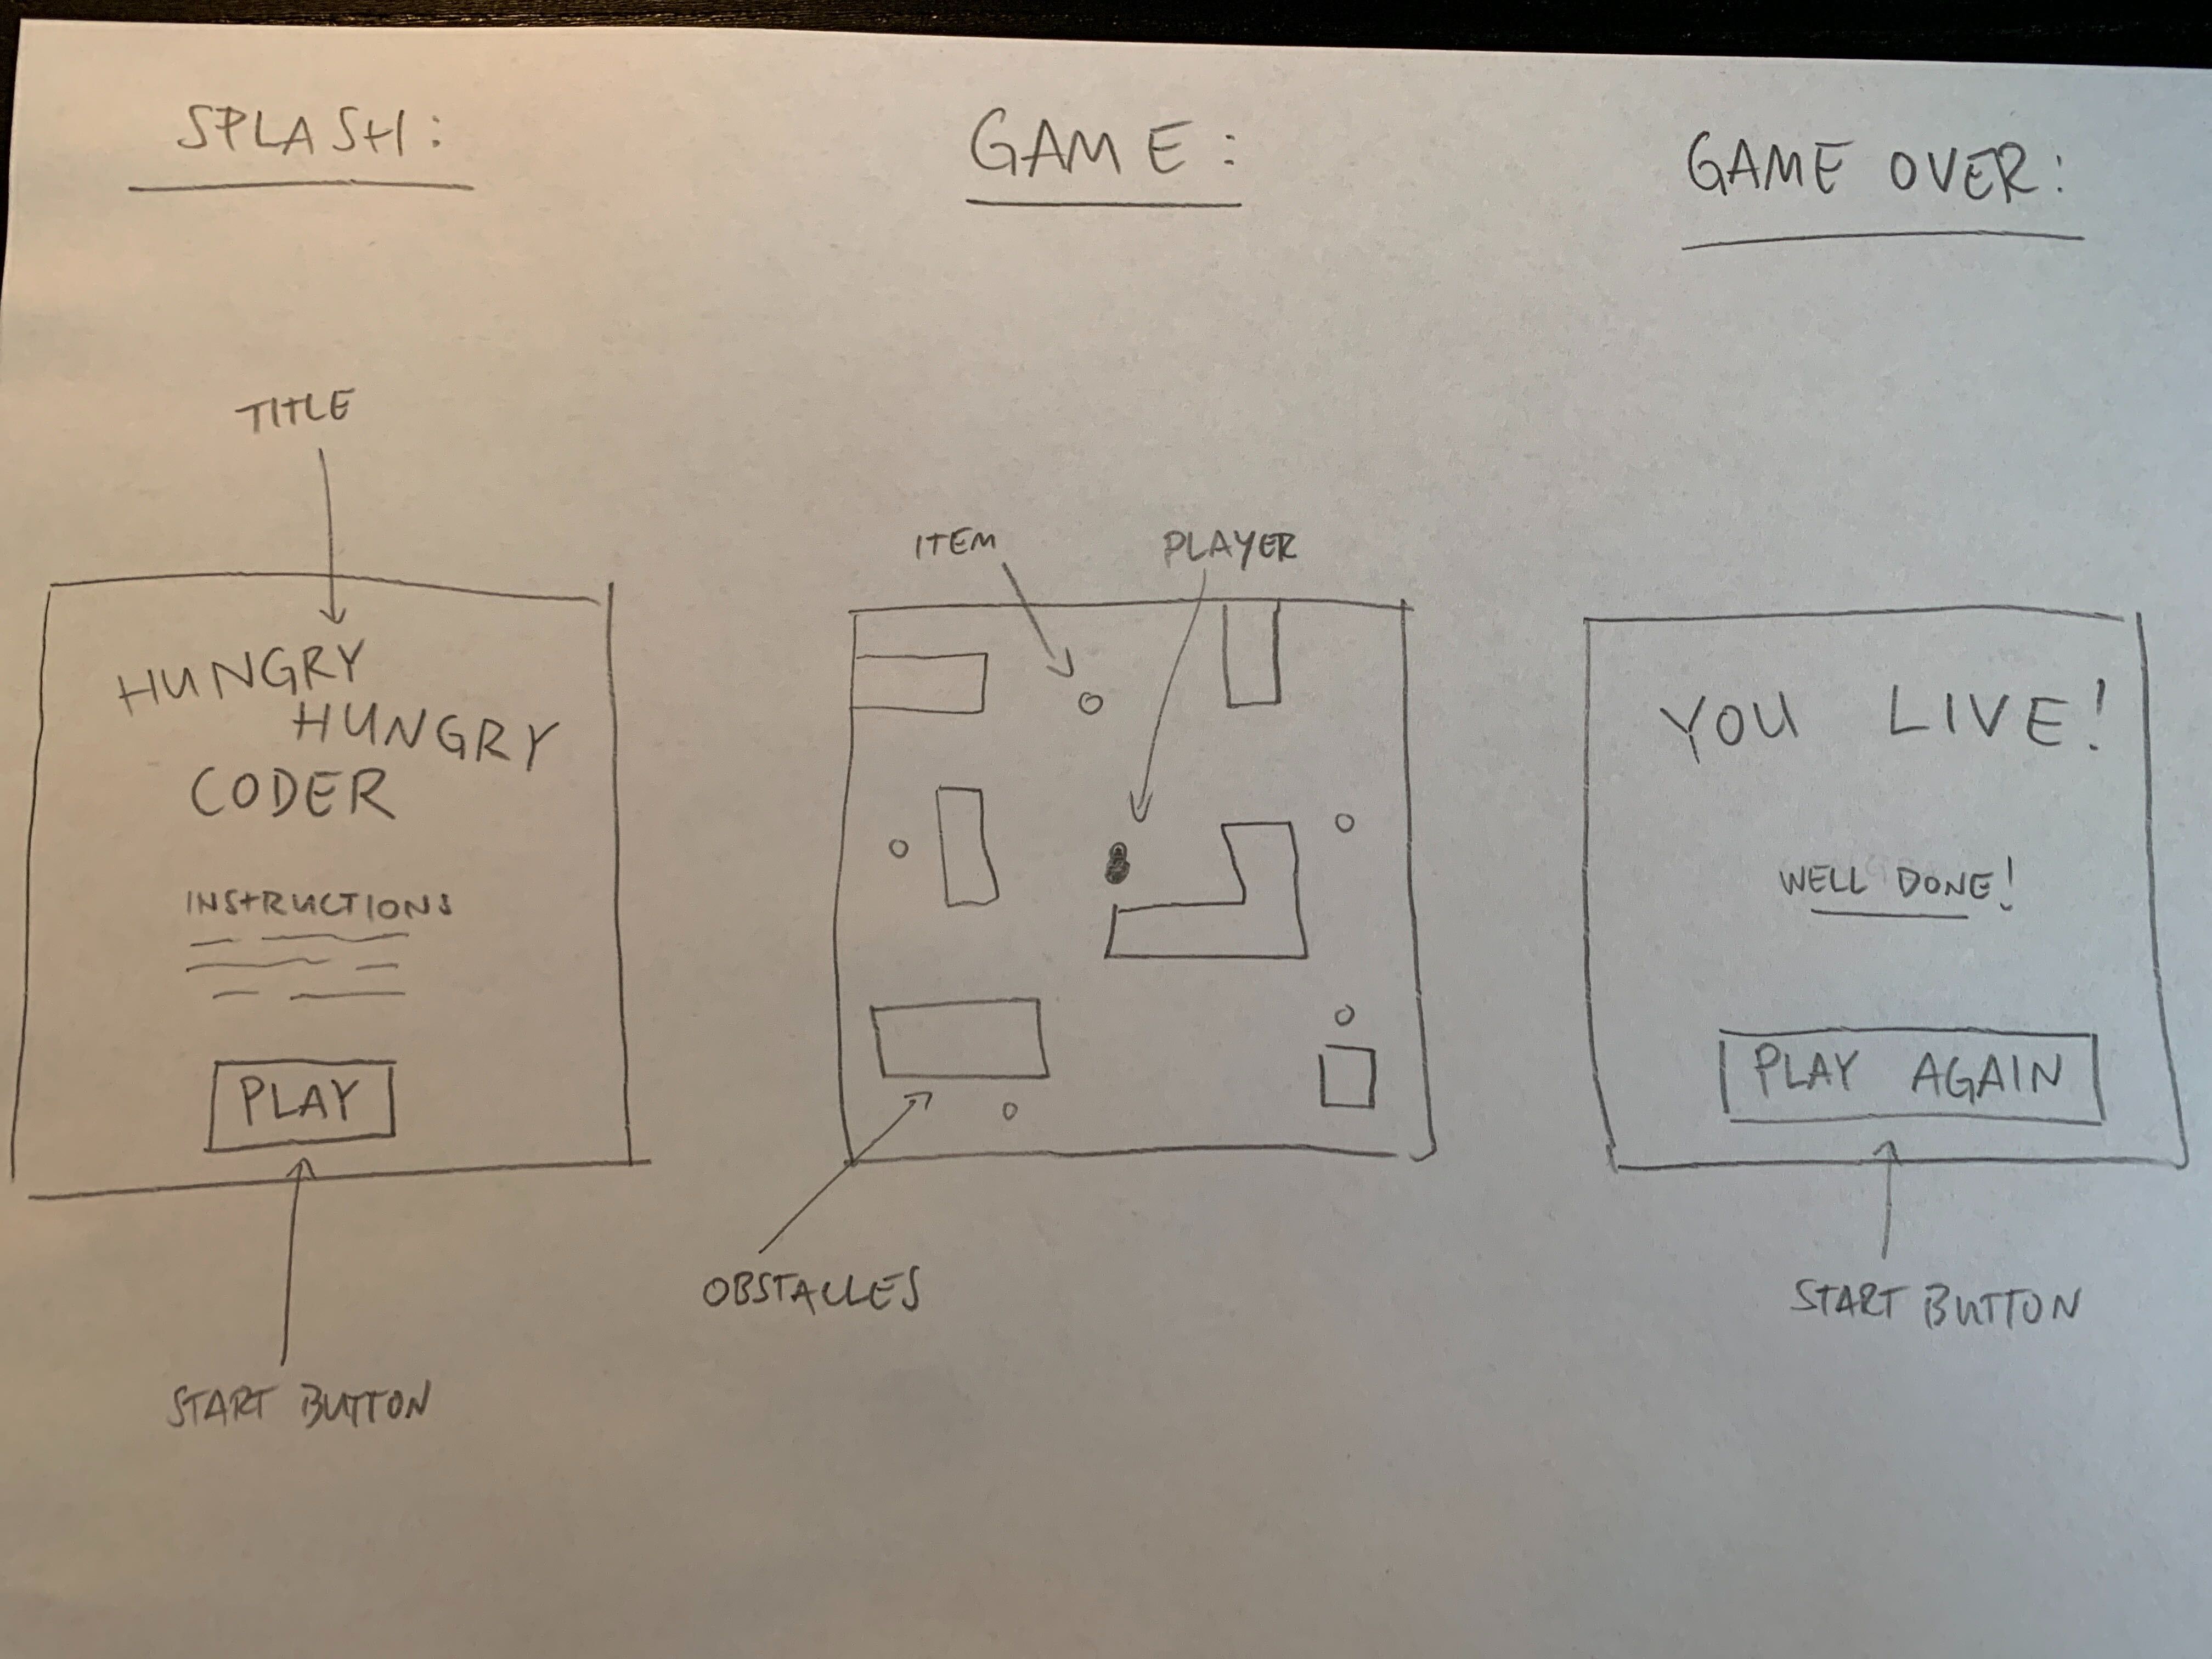 SPLASH:
TITLE
HUNGRY
HUNGRY
CODER
INSTRUCTIONS
PLAY
START BUTTON
GAME:
ITEM
PLAYER
OBSTACLES
GAME OVER:
YOU LIVE!
WELL DONE!
PLAY AGAIN
START BUTTON